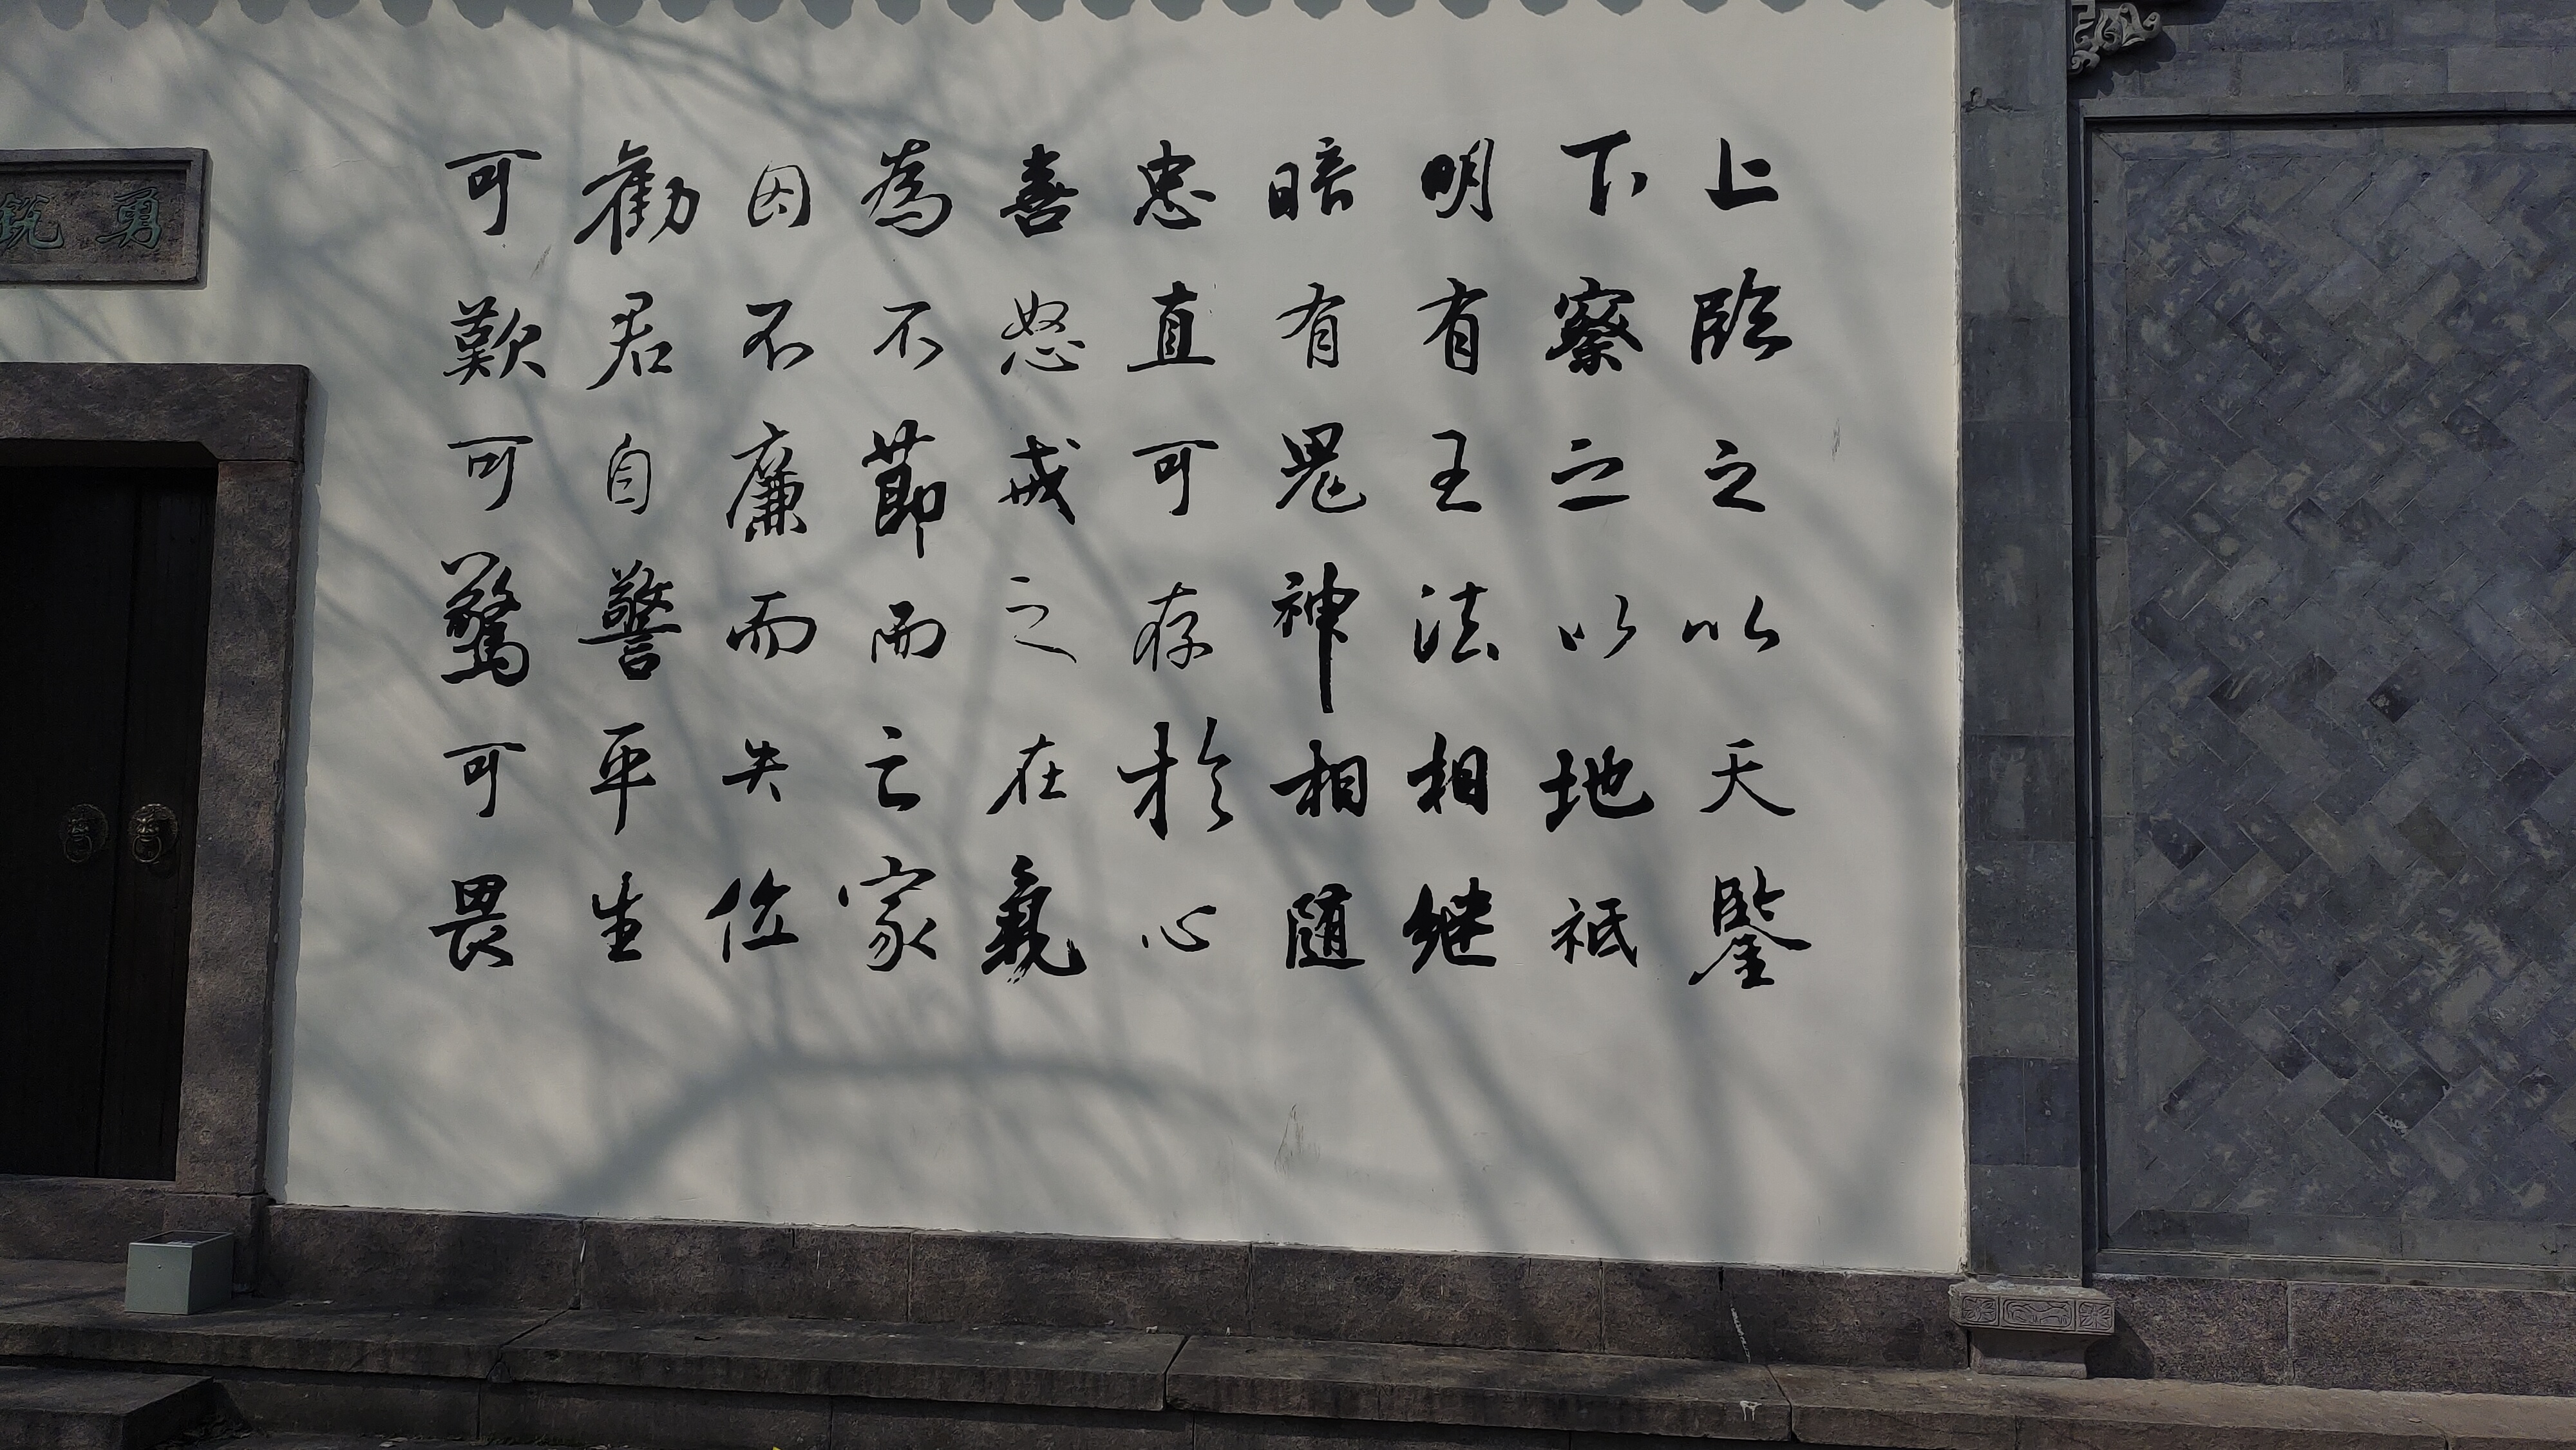 上臨之以天鑒
下察之以地祇
明有王法相継
暗有鬼神相隨
忠直可存於心
喜怒戒之在氣
為不節而亡家
因不廉而失位
勸君自警平生
可歎可驚可畏
勇銳